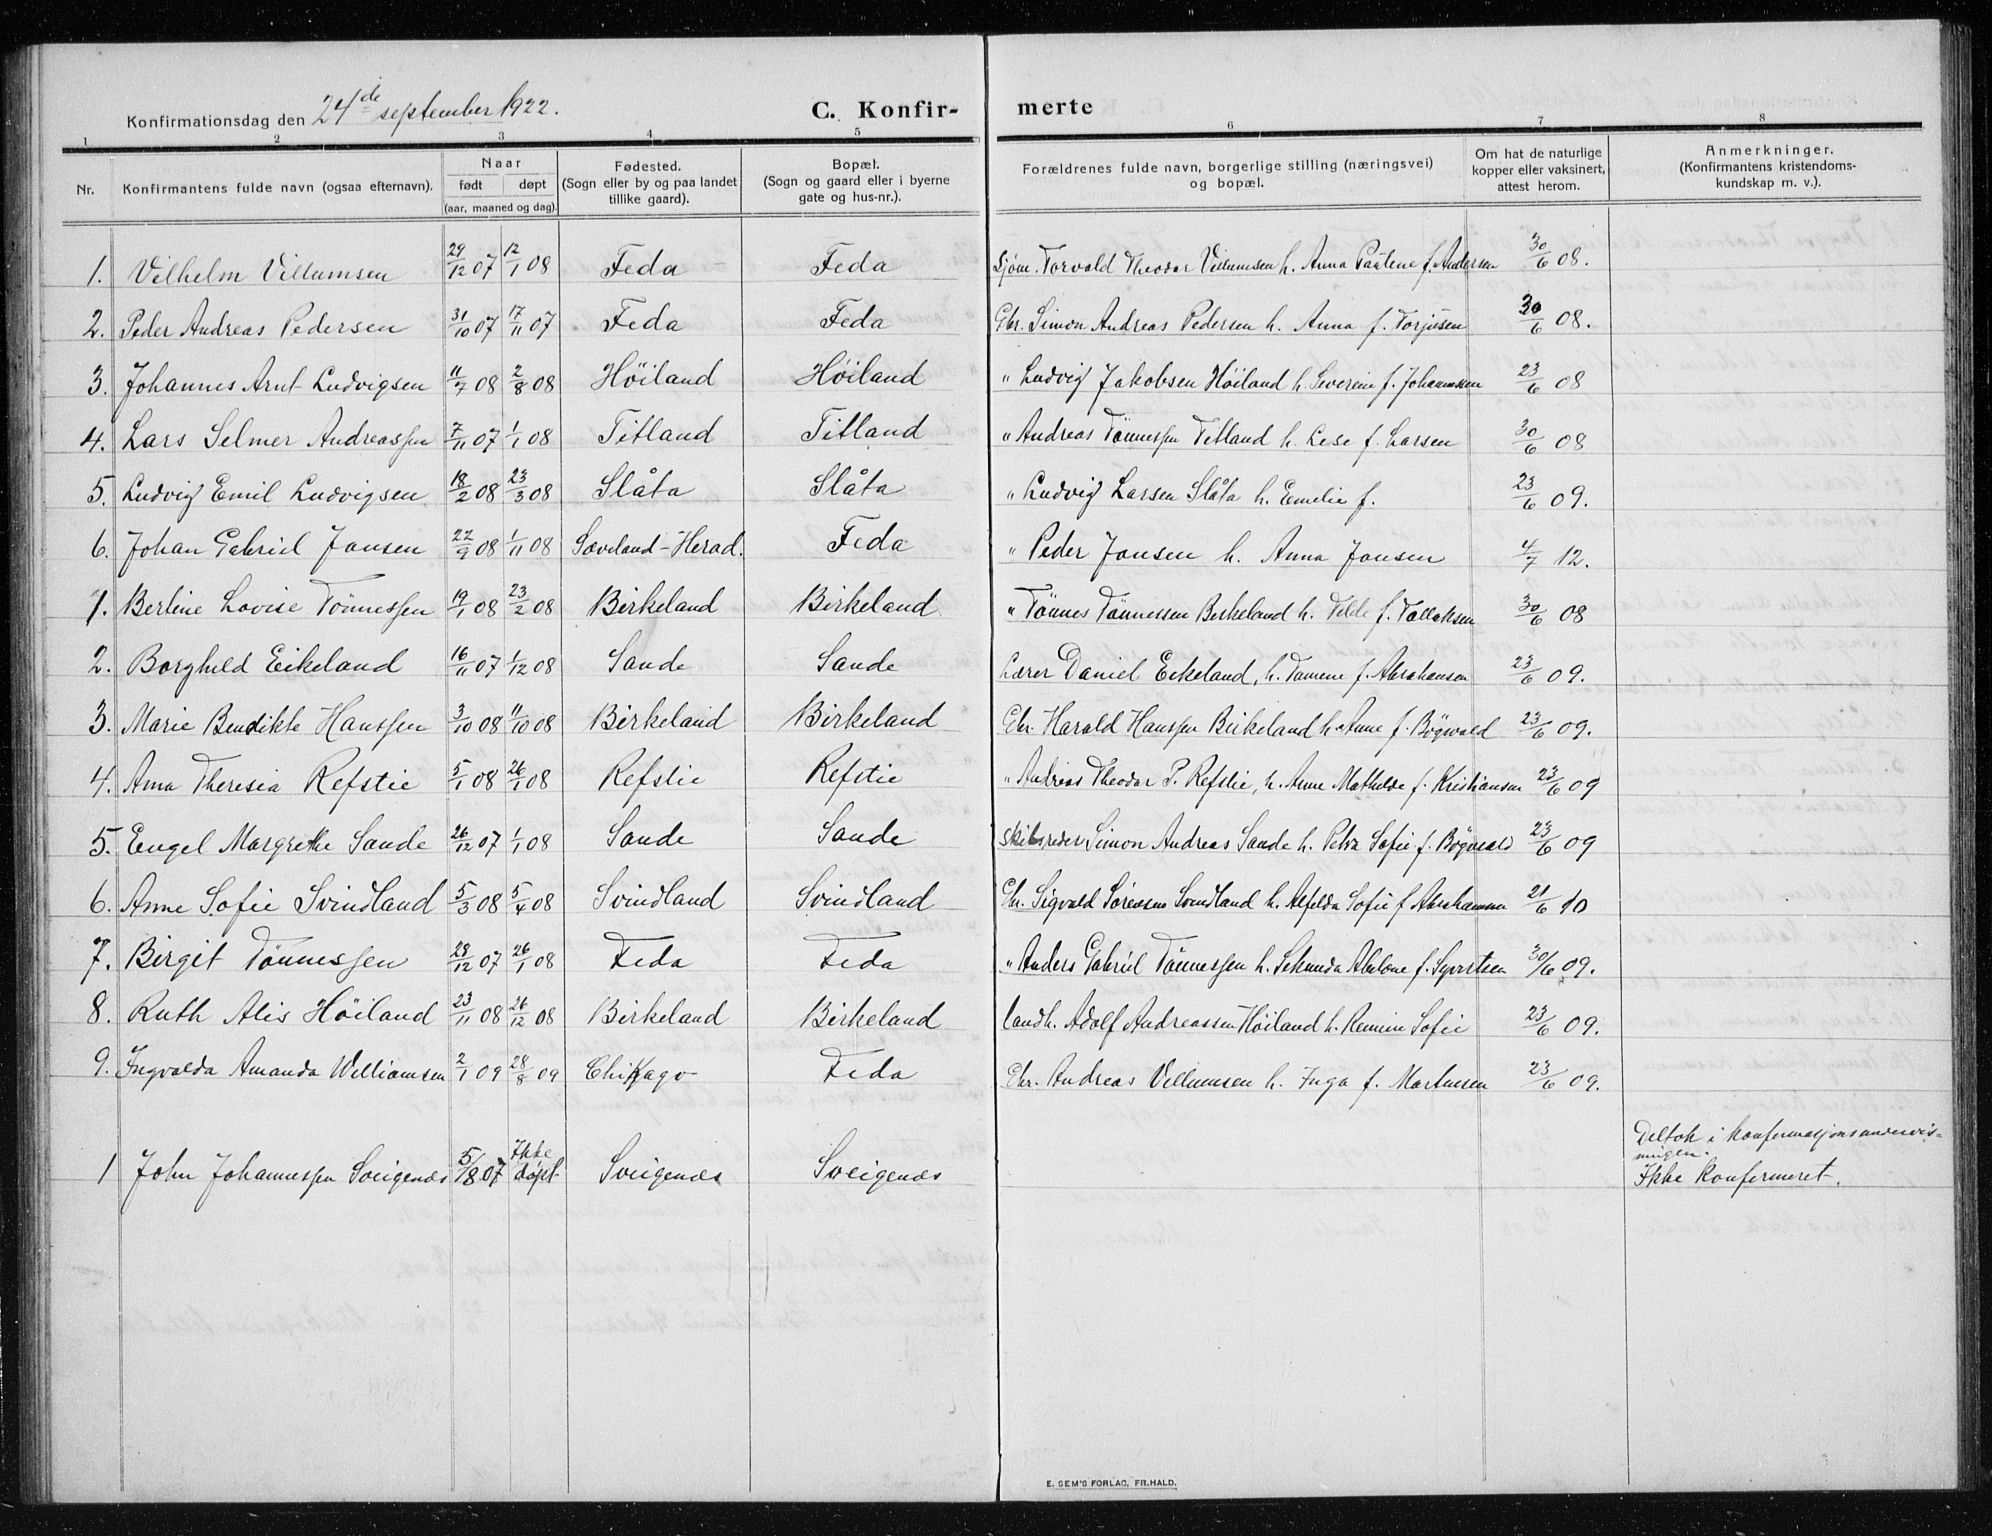 Konfirmationsdag den 24de september 1922. C. Konfir- merte
1 2 3 4 5 6 7 8
Nr. Konfirmantens fulde navn (ogsaa efternavn). Naar født døpt (aar, maaned og dag). Fødested. (Sogn eller by og paa landet tillike gaard). Bopæl. (Sogn og gaard eller i byerne gate og hus-nr.). Forældrenes fulde navn, borgerlige stilling (næringsvei) og bopæl. Om hat de naturlige kopper eller vaksinert, attest herom. Anmerkninger. (Konfirmantens kristendoms- kundskap m. v.).
1. Vilhelm Villumsen 29/12 07 12/1 08 Feda Feda Sjøm. Torvald Theodor Villumsen h. Anna Pauline f. Andersen 30/6 08.
2. Peder Andreas Pedersen 31/10 07 17/11 07 Feda Feda Gbr. Simon Andreas Pedersen h. Anna f. Torjusen 30/6 08.
3. Johannes Arnt Ludvigsen 11/7 08 2/8 08 Höiland Höiland " Ludvig Jakobsen Höiland h. Severine f. Johannssen 23/6 08
4. Lars Selmer Andreassen 7/11 07 1/1 08 Titland Titland " Andreas Tönnessen Titland h. Lise f. Larsen 30/6 08
5. Ludvig Emil Ludvigsen 18/2 08 23/3 08 Slåta Slåta " Ludvig Larsen Slåta h. Emelie f. 23/6 09.
6. Johan Gabriel Jansen 22/9 08 1/11 08 Sæveland-Herad. Feda " Peder Jansen h. Anna Jansen 4/7 12.
1. Berline Lovise Tönnessen 19/1 08 23/2 08 Birkeland Birkeland " Tönnes Tönnessen Birkeland h. Tilde f. Tallaksen 30/6 08
2. Borghild Eikeland 16/11 07 1/12 08 Sande Sande Lærer Daniel Eikeland, h. Tamine f. Abrahamsen 23/6 09.
3. Marie Bendikte Hanssen 3/10 08 11/10 08 Birkeland Birkeland Gbr. Harald Hanssen Birkeland h. Anne f. Bögwald 23/6 09.
4. Anna Theresia Refstie 5/1 08 26/1 08 Refstie Refstie " Andreas Theodor P. Refstie, h. Anne Mathilde f. Kristiansen 23/6 09
5. Engel Margrethe Sande 26/12 07 1/1 08 Sande Sande Skibsreder Simon Andreas Sande h. Petra Sofie f. Bögwald 23/6 09
6. Anne Sofie Svindland 5/3 08 5/4 08 Svindland Svindland Gbr. Sigvald Sörensen Svindland h. Alfilda Sofie f Abrahamsen 21/6 10
7. Birgit Tönnessen 28/12 07 26/1 08 Feda Feda " Anders Gabriel Tönnessen h. Sekunda Abelone f. Syvertsen 30/6 09.
8. Ruth Alis Höiland 23/11 08 26/12 08 Birkeland Birkeland Landh. Adolf Andreassen Höiland h. Remine Sofie 23/6 09.
9. Ingvalda Amanda Williamsen 2/1 09 28/8 09 Chikago Feda Gbr. Andreas Villumsen h. Inga f. Martinsen 23/6 09.
1 John Johannessen Sveigenes 5/8 07 Ikke döpt Sveigenes Sveigenes Deltok i konfirmasjonsundervis-
ningen.
Ikke konfirmeret.
E. SEM'S FORLAG, FR.HALD.